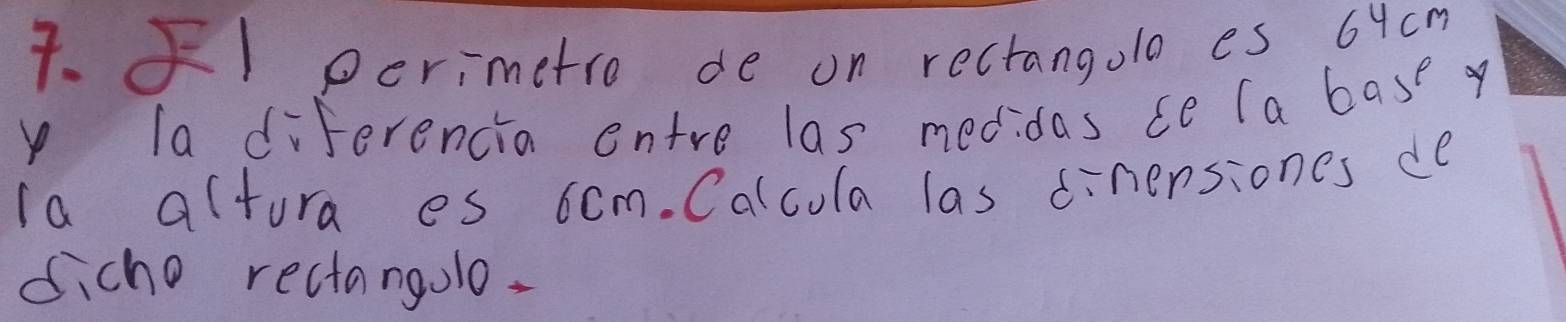 7. El perimetro de un rectangulo es 64cm
y la diferencia entre las medidas de la base y
la altura es 6cm. Calcula las dimensiones de
dicho rectangulo.